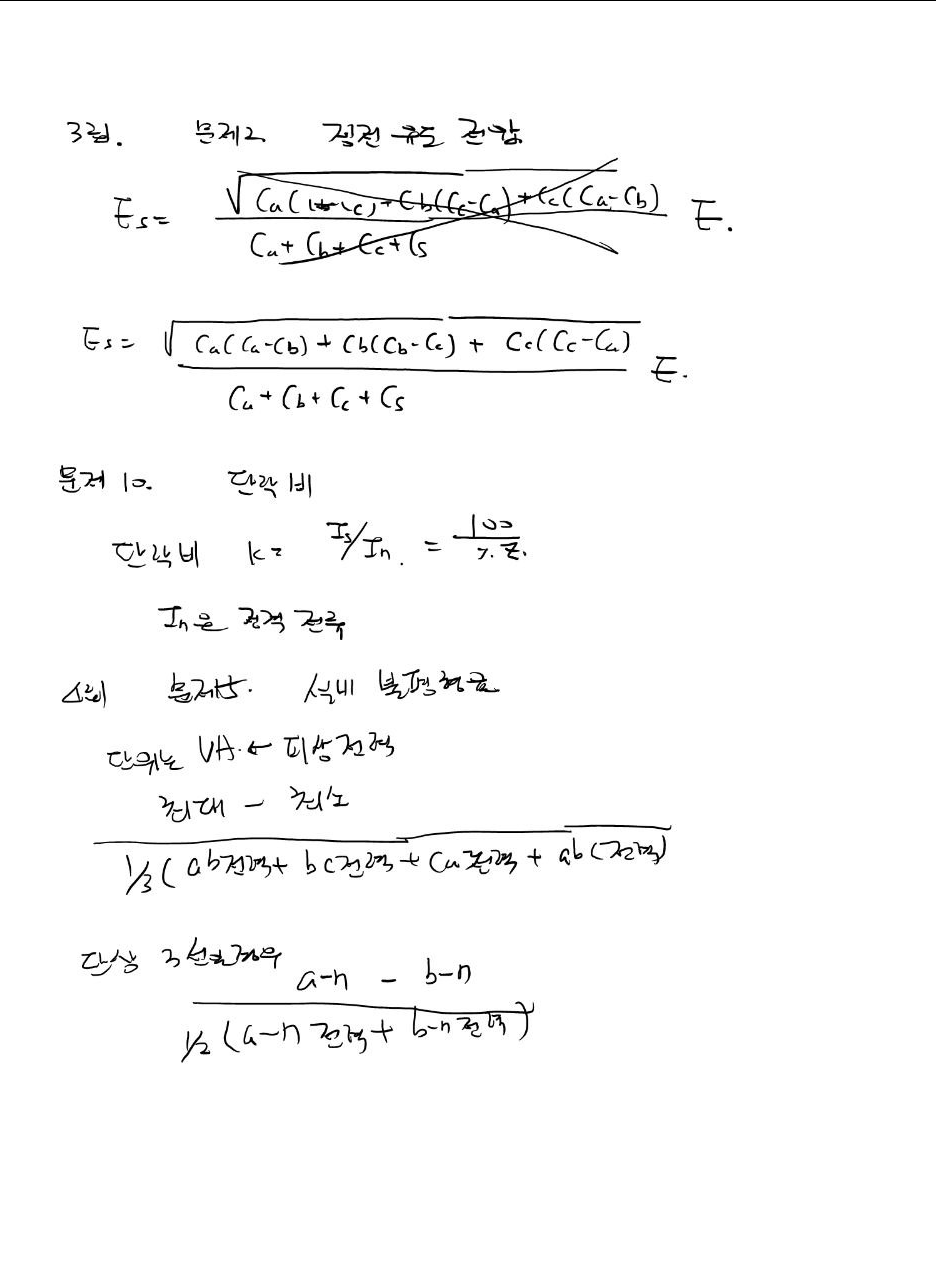 3회. 문제2 정전 유도 전압
Es = √Ca( - c) + Cb(Cc-Ca) + Cc(Ca-Cb) / Ca + Cb + Cc + Cs E.
Es = √Ca(Ca-Cb) + Cb(Cb-Cc) + Cc(Cc-Ca) / Ca + Cb + Cc + Cs E.
문제 10. 단락비
단락비 k = Is/In. = 100/%.Z.
In은 정격 전류
문제15. 설비 불평형률
단위는 VA ← 피상전력
최대 - 최소
1/3 ( ab전력 + bc전력 + ca전력 + ab(전력)
단상 3선의 경우
a-n - b-n
1/2 (a-n 전력 + b-n 전력)